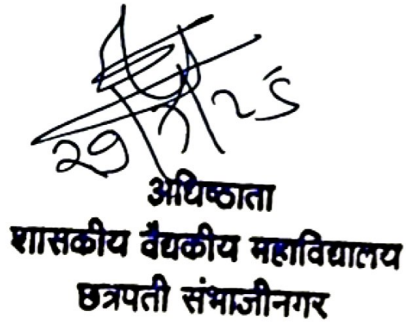 अधिष्ठाता
शासकीय वैद्यकीय महाविद्यालय
छत्रपती संभाजीनगर